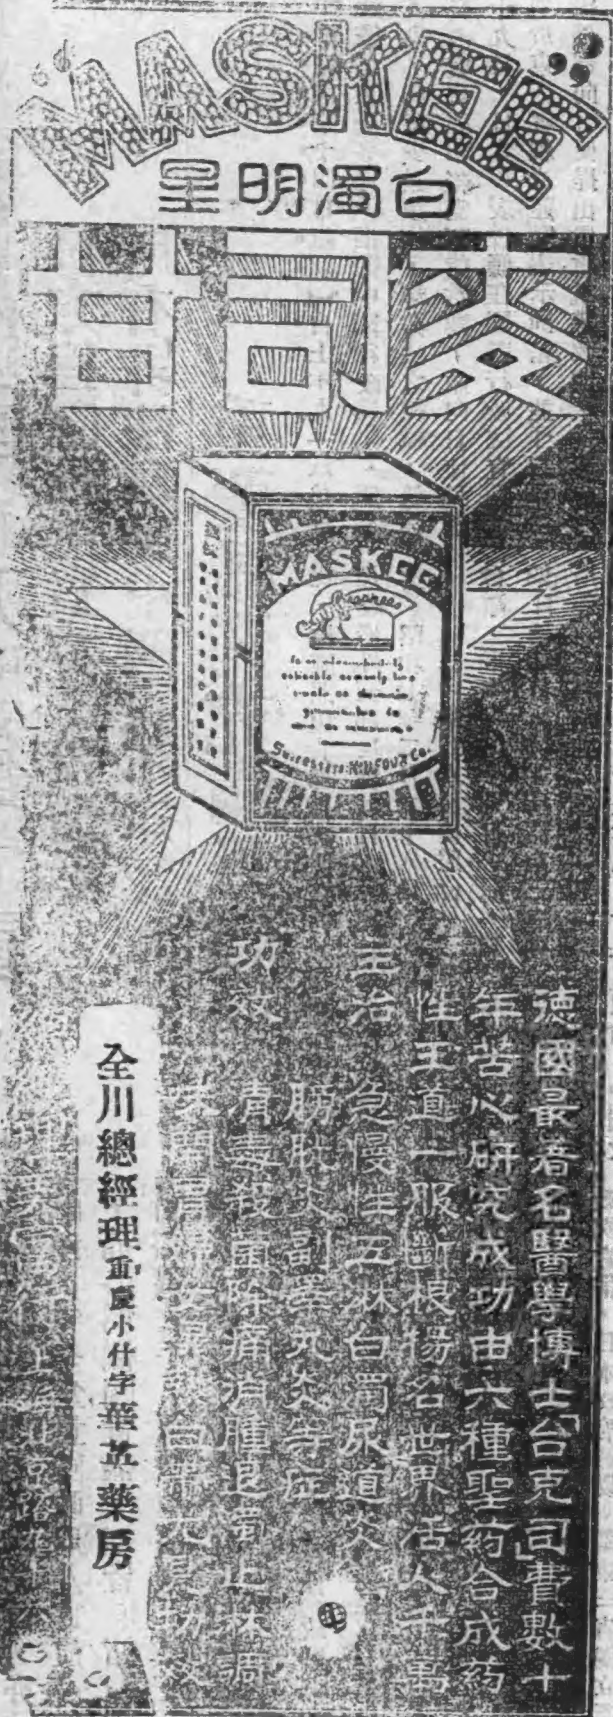 "MASKEE"
白濁明星
麥司甘
MASKEE
德國最著名醫學博士「台克司」費數十
年苦心研究成功由六種聖药合成药
性王道一服斷根揚名世界活人千萬
主治 急慢性五淋白濁尿道炎
膀胱炎副睪丸炎等症
功效 清毒殺菌除痛消腫退濁止淋調
白帶尤具功效
全川總經理重慶小什字華英藥房
上海北京路九十六